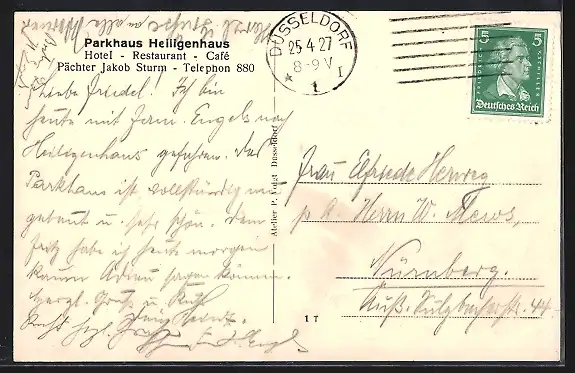 Parkhaus Heiligenhaus
Hotel - Restaurant - Café
Pächter Jakob Sturm - Telephon 880
DÜSSELDORF
25.4.27
8-9 V
★ t I
5 5
FRIEDRICH v. SCHILLER
Deutsches Reich
Liebe Friedel! Ich bin
heute mit Fam. Engels nach
Heiligenhaus gefahren. Das
Parkhaus ist vollständig neu
gebaut u. sehr schön. Dem
Fritz habe ich heute morgen
kaum Adieu sagen können.
Herzl. Gruß u. Kuß
Atelier P. Voigt Düsseldorf
Frau Elfriede Herweg
p. A. Herrn W. Mews,
Nürnberg.
Äuß. Sulzbacherstr. 44
1 T